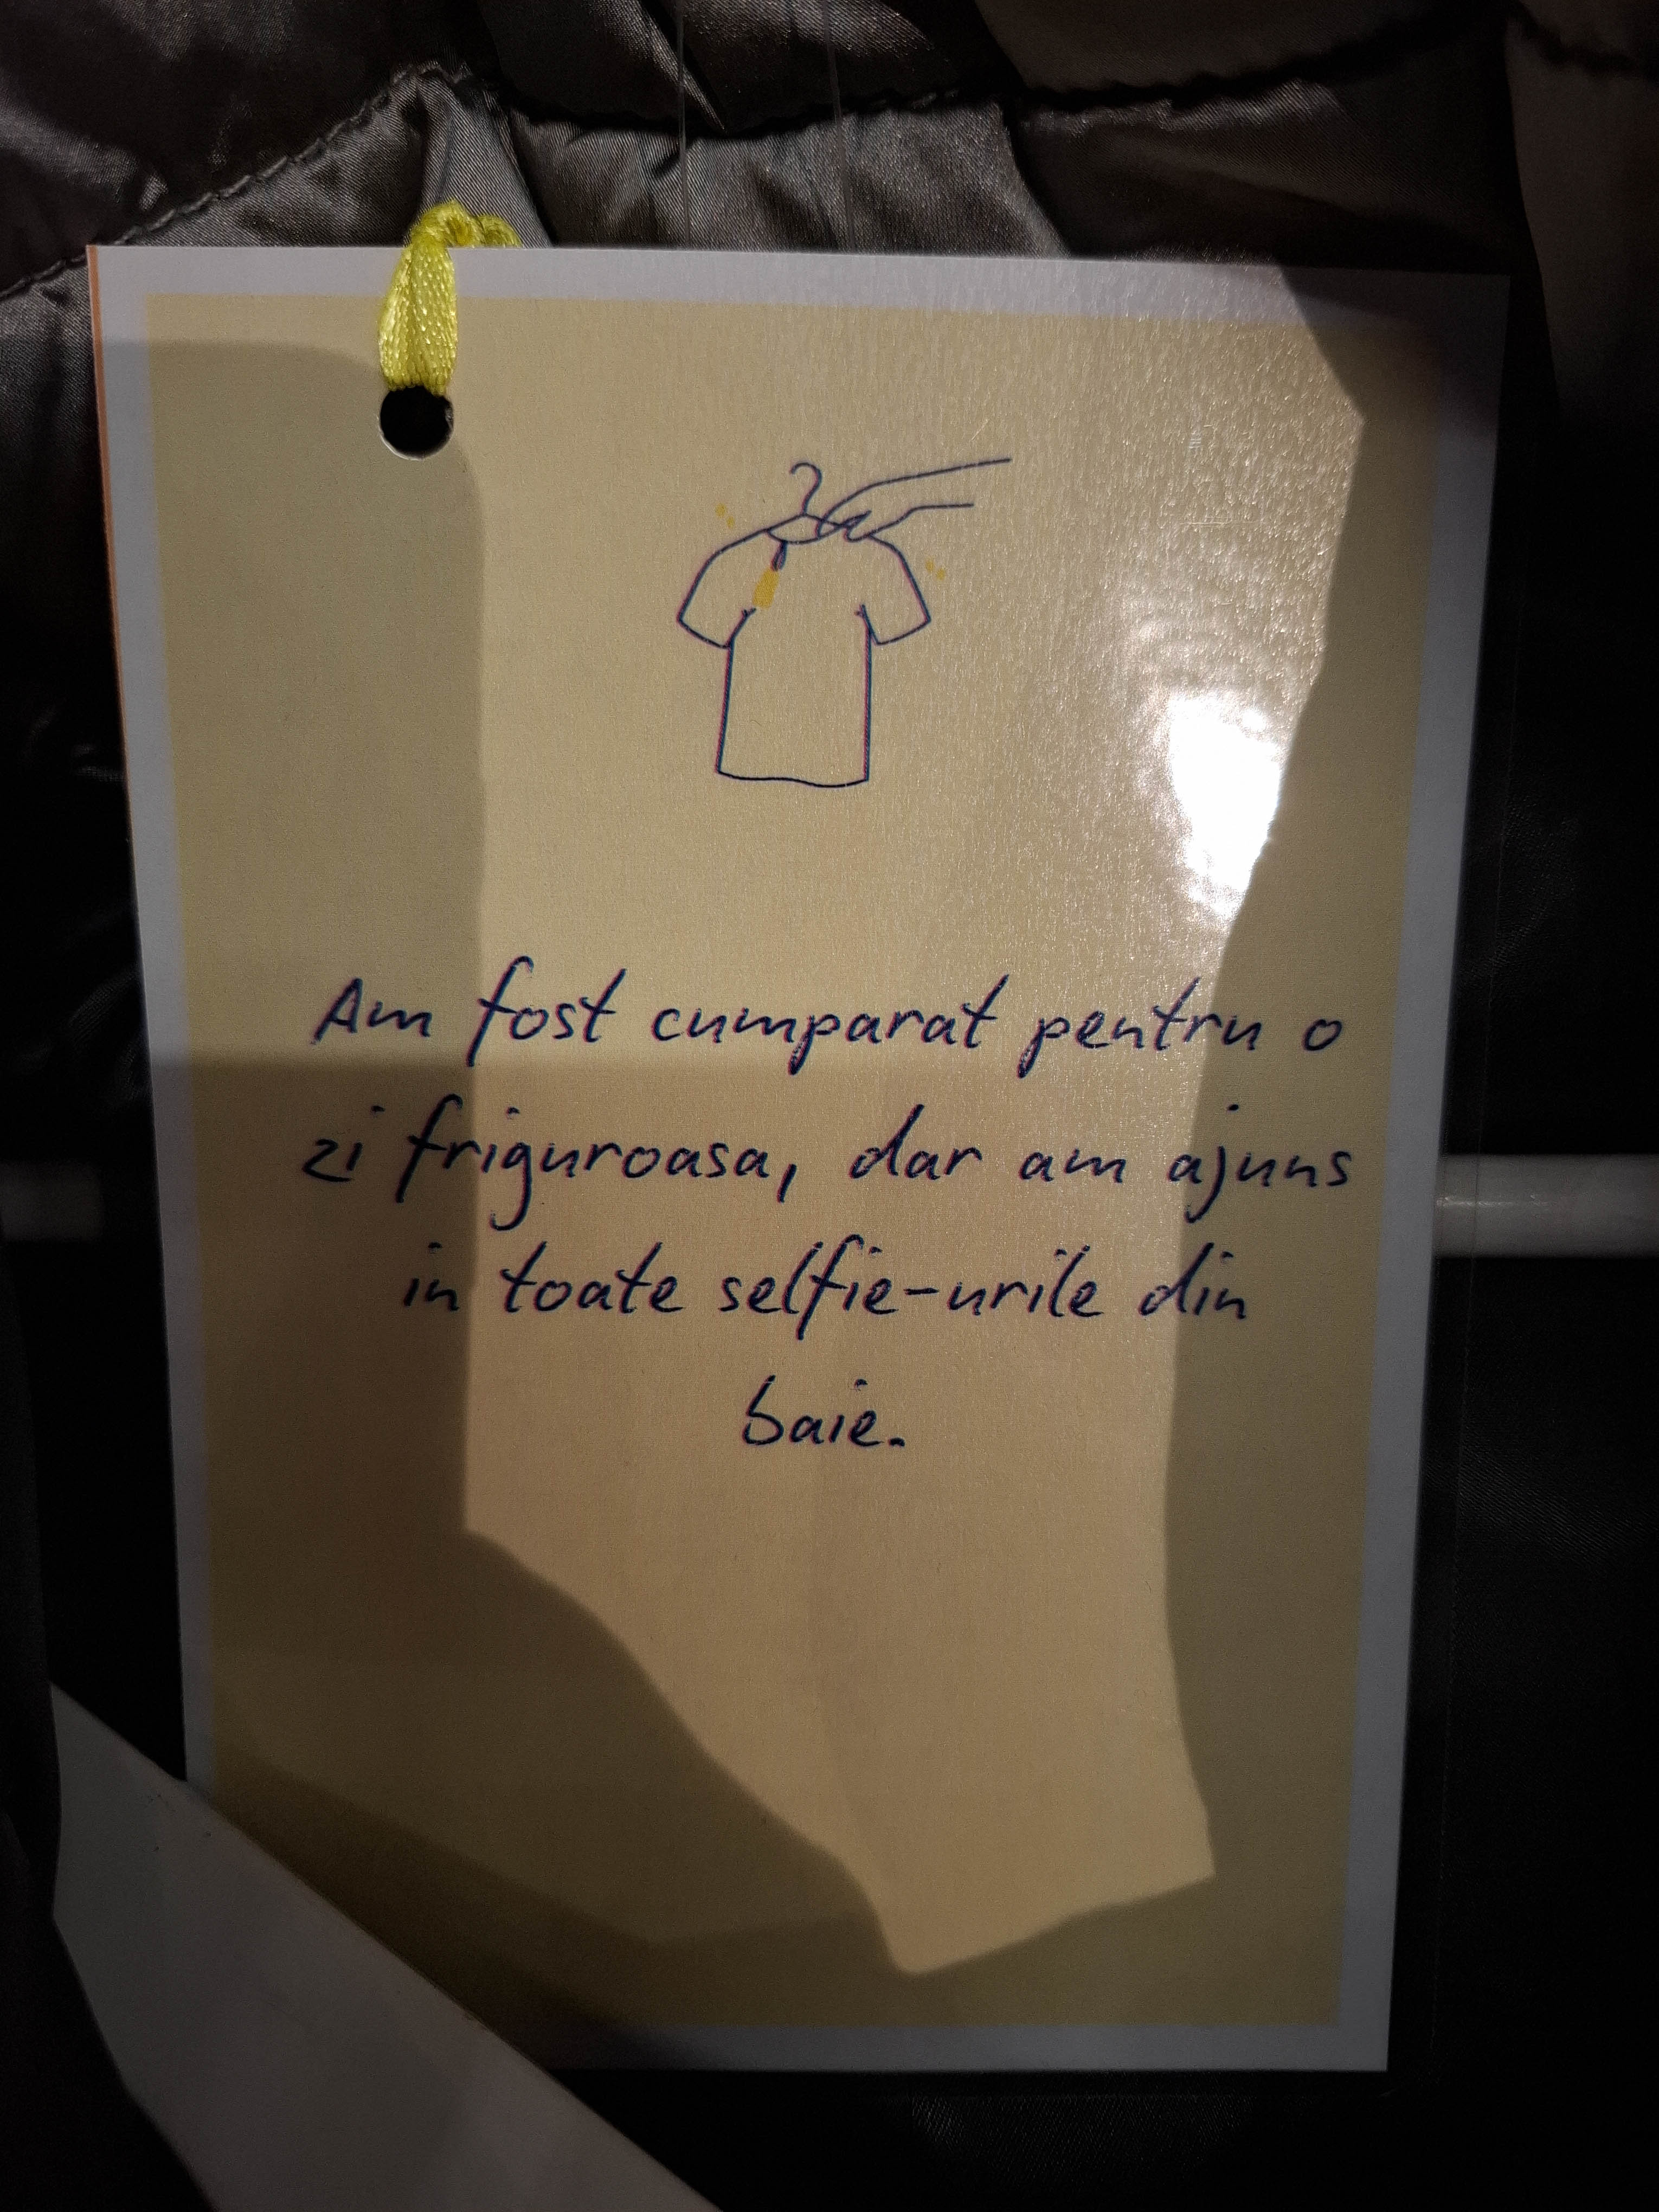 Am fost cumparat pentru o
zi friguroasa, dar am ajuns
in toate selfie-urile din
baie.